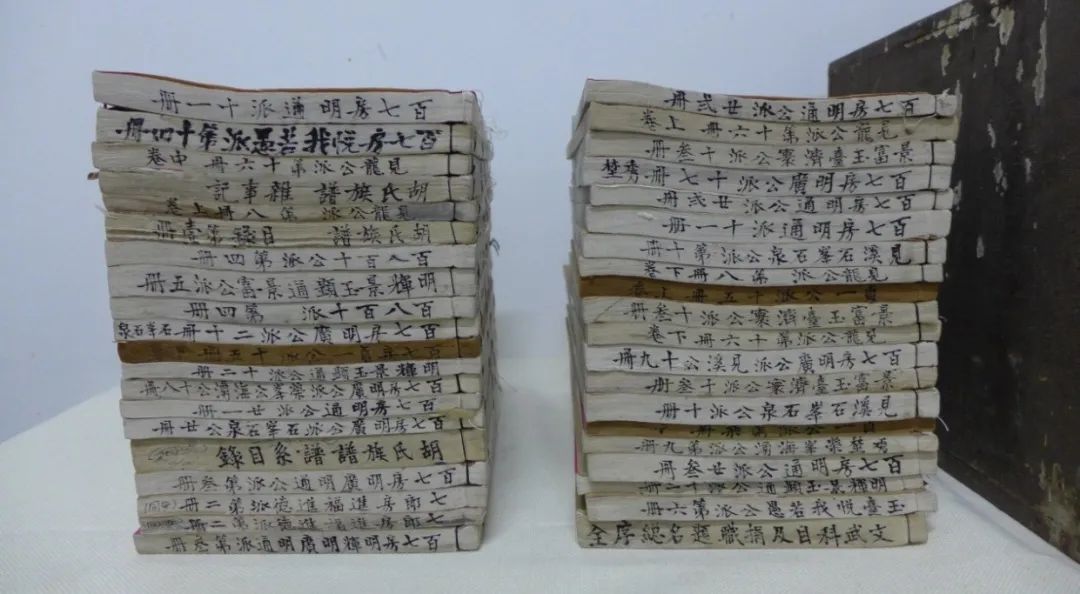 百七房明通派十一冊
百七房悦我若愚派第十四冊
見龍公派第十六冊 中卷
胡氏族譜 雜事記
見龍公派 第八冊上卷
胡氏族譜 目錄第壹冊
百八百十公派第四冊
明輝景玉顯通景富公派五冊
百八百十派 第四冊
百七房明廣公派二十冊 石峯石泉
百一公派十五冊
明輝景玉顯通公派十二冊
百七房明廣公派榮峯海濤公十八冊
百七房明通公派廿一冊
百七房明廣公派石峯石泉公廿冊
胡氏族譜譜系目錄
百七房明廣明通公派第叁冊
七郎房進福進德派第二冊
七郎房進福進德派第二冊
百七房明輝明廣明通派第叁冊
百七房明通公派廿弍冊
見龍公派第十六冊 上卷
景富玉臺濟寰公派十叁冊
百七房明廣公派十七冊 秀埜
百七房明通公派廿弍冊
百七房明通派十一冊
見溪石峯石泉公派第十冊
見龍公派 第八冊下卷
百一公派十五冊上卷
景富玉臺濟寰公派十叁冊
見龍公派第十六冊下卷
百七房明廣公派見溪公十九冊
景富玉臺濟寰公派十叁冊
見溪石峯石泉公派十冊
埜榮峯海濤公派第九冊
百七房明通公派廿叁冊
明輝景玉顯通公派十二冊
玉臺悦我若愚公派第六冊
文武科目及捐職題名總序全